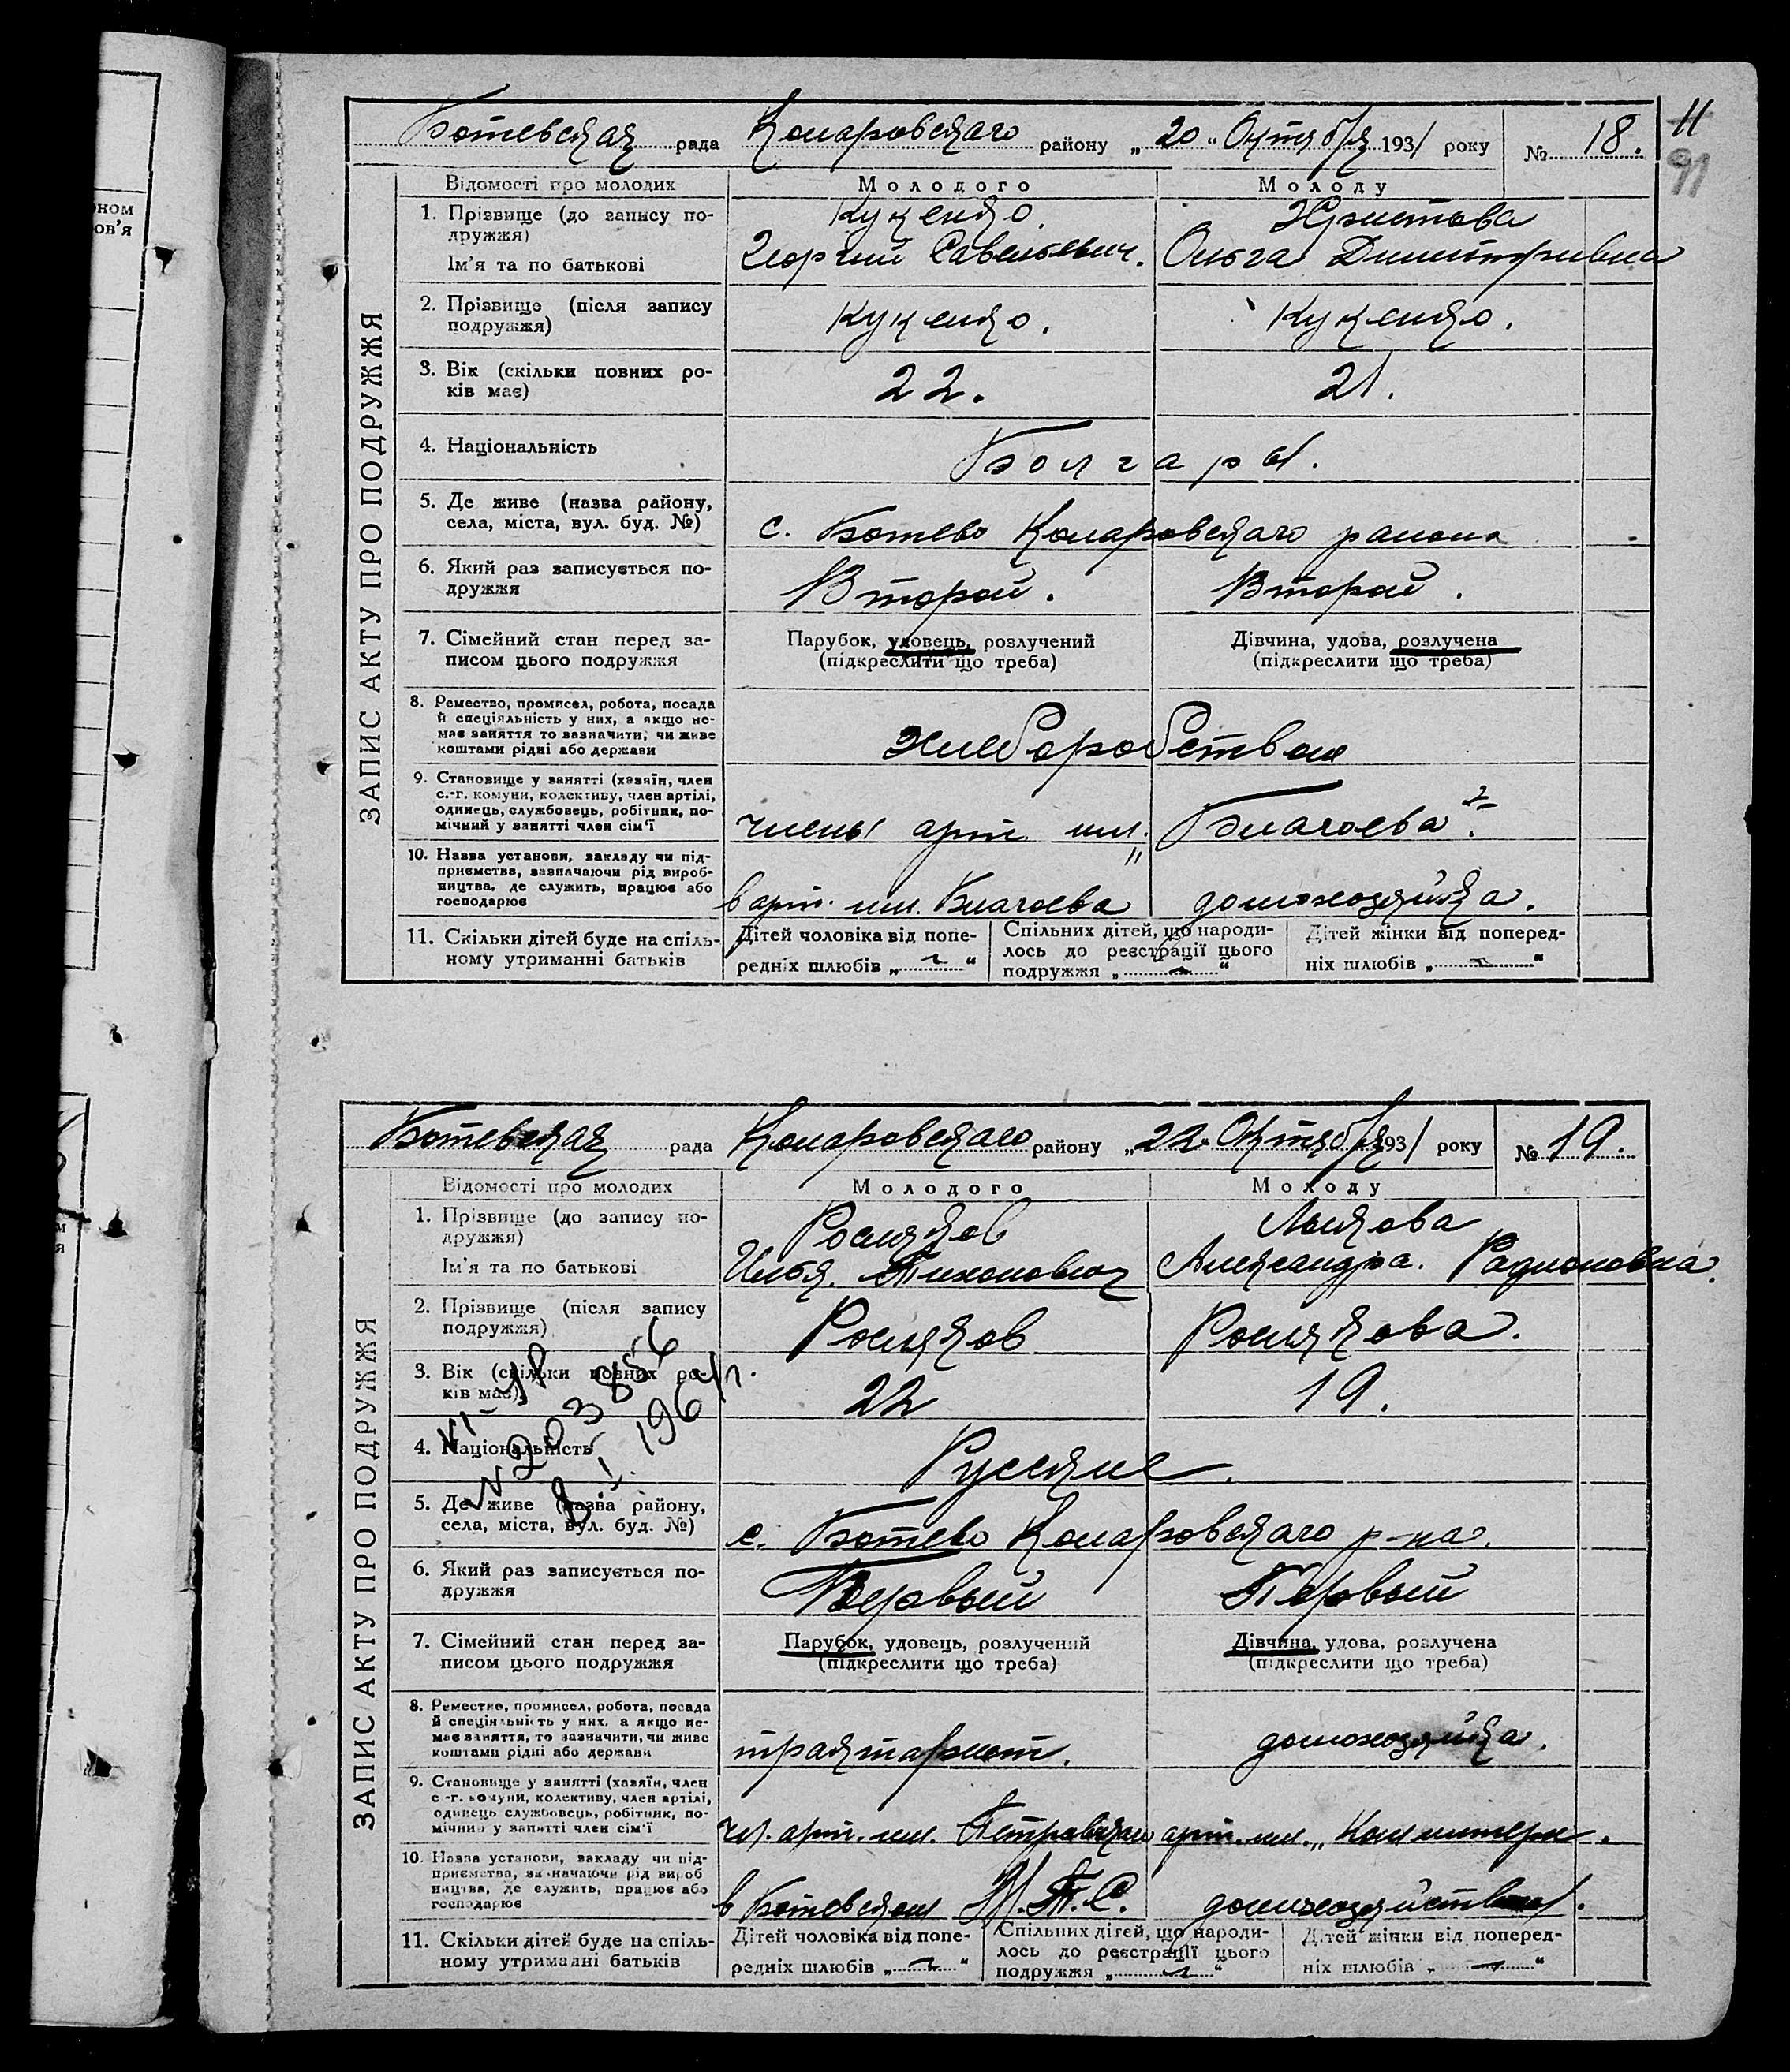 11
91
Ботевская рада Коларовского району „20“ Октября 1931 року № 18.
ЗАПИС АКТУ ПРО ПОДРУЖЖЯ
Відомості про молодих
Молодого
Молоду
1. Прізвище (до запису по-
дружжя)
Ім'я та по батькові
Христова
Георгий Савельевич.
Ольга Димитриевна
2. Прізвище (після запису
подружжя)
3. Вік (скільки повних ро-
ків має)
22.
21.
4. Національність
Болгары.
5. Де живе (назва району,
села, міста, вул. буд. №)
с. Ботево Коларовского района
6. Який раз записується по-
дружжя
Второй.
Второй.
7. Сімейний стан перед за-
писом цього подружжя
Парубок, удовець, розлучений
(підкреслити що треба)
Дівчина, удова, розлучена
(підкреслити що треба)
8. Ремество, промисел, робота, посада
й спеціяльність у них, а якщо не-
має заняття то зазначити, чи живе
коштами рідні або держави
9. Становище у занятті (хазяїн, член
с.-г. комуни, колективу, член артілі,
одинець, службовець, робітник, по-
мічний у занятті член сім'ї
члены арт. им. Благоева
10. Назва установи, закладу чи під-
приємства, зазначаючи рід вироб-
ництва, де служить, працює або
господарює
в арт. им. Благоева
домохозяйка.
11. Скільки дітей буде на спіль-
ному утриманні батьків
Дітей чоловіка від попе-
редніх шлюбів „ “
Спільних дітей, що народи-
лось до реєстрації цього
подружжя „ “
Дітей жінки від поперед-
ніх шлюбів „ “
Ботевская рада Коларовского району „22“ Октября 1931 року № 19.
ЗАПИС АКТУ ПРО ПОДРУЖЖЯ
Відомості про молодих
Молодого
Молоду
1. Прізвище (до запису по-
дружжя)
Ім'я та по батькові
Росляков
Лыкова
Илья Тихонович
Александра. Радионовна.
2. Прізвище (після запису
подружжя)
Росляков
Рослякова.
3. Вік (скільки повних ро-
ків має)
22
19.
4. Національність
Русские.
5. Де живе (назва району,
села, міста, вул. буд. №)
с. Ботево Коларовского р-на.
6. Який раз записується по-
дружжя
Первый
Первый
7. Сімейний стан перед за-
писом цього подружжя
Парубок, удовець, розлучений
(підкреслити що треба)
Дівчина, удова, розлучена
(підкреслити що треба)
8. Ремество, промисел, робота, посада
й спеціяльність у них, а якщо не-
має заняття, то зазначити, чи живе
коштами рідні або держави
домохозяйка.
9. Становище у занятті (хазяїн, член
с.-г. комуни, колективу, член артілі,
одинець службовець, робітник, по-
мічний у занятті член сім'ї
чл. арт. им. Петровского
арт. им. „Коминтерн.
10. Назва установи, закладу чи під-
приємства, зазначаючи рід вироб
ництва, де служить, працює або
господарює
в Ботевском М.Т.С.
11. Скільки дітей буде на спіль-
ному утриманні батьків
Дітей чоловіка від попе-
редніх шлюбів „ “
Спільних дітей, що народи-
лось до реєстрації цього
подружжя „ “
Дітей жінки від поперед-
ніх шлюбів „ “